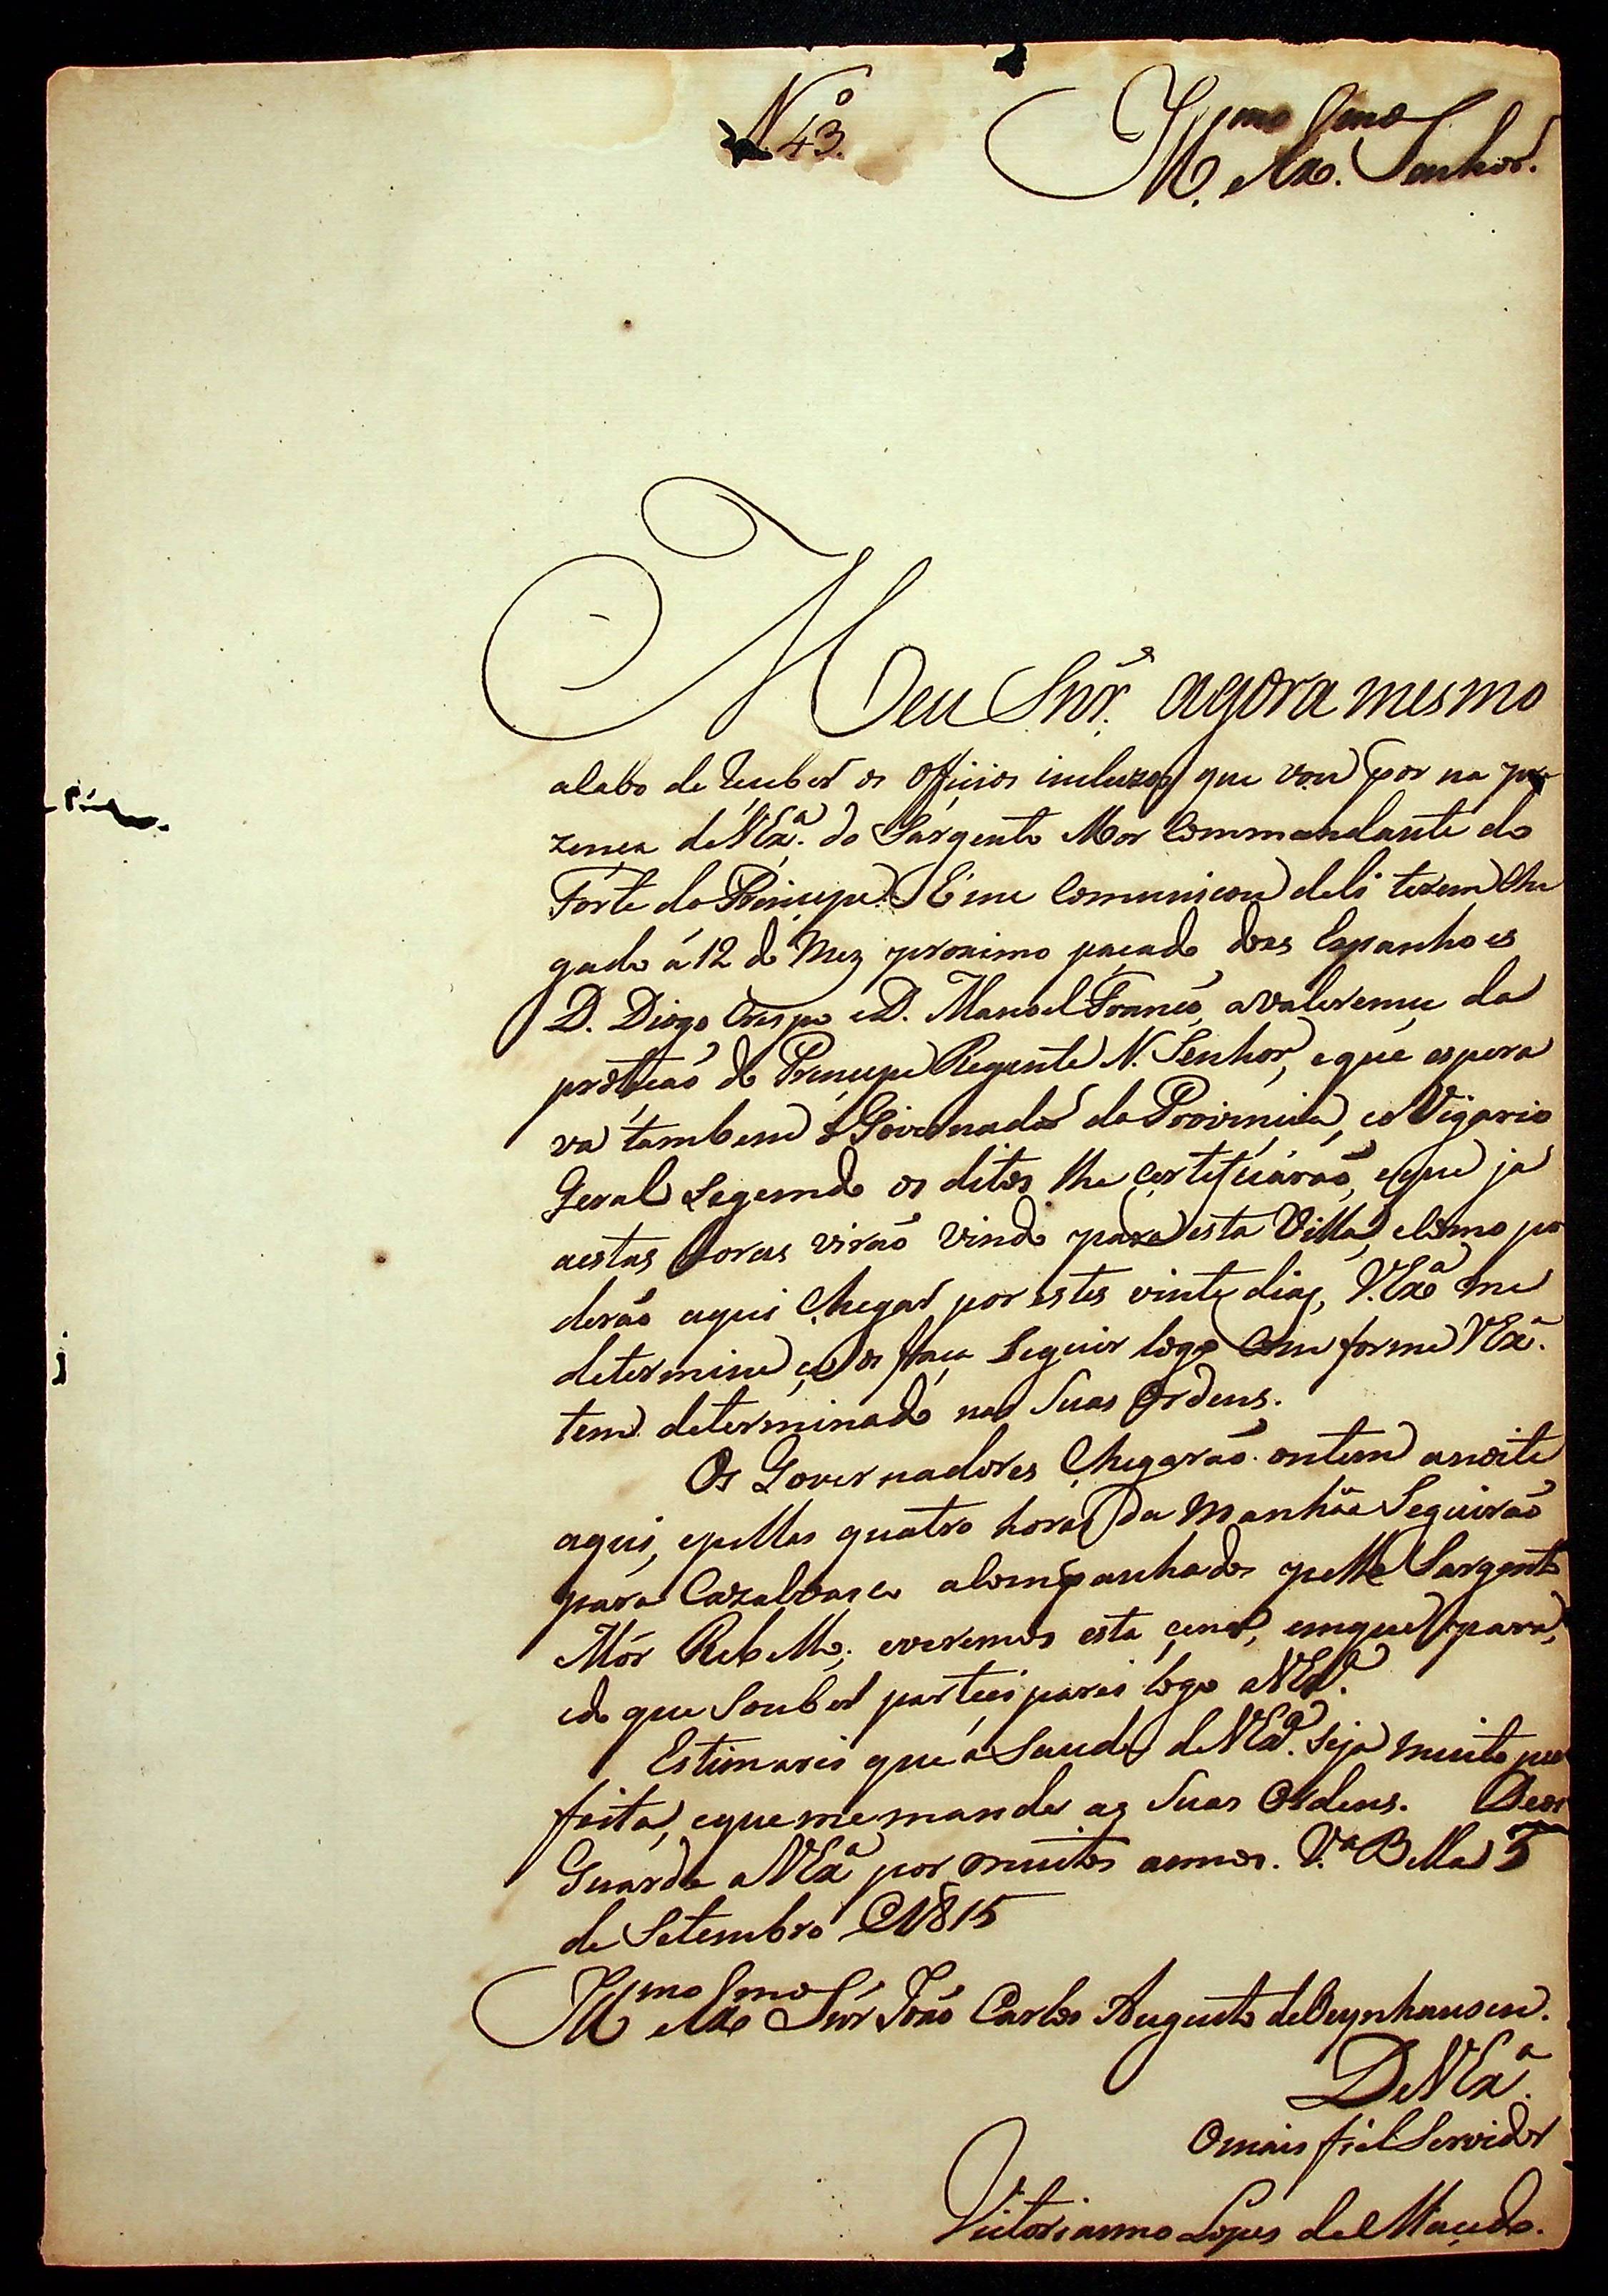 N.º 43.
Ill.mo e Ex.mo Senhor.
Meu Snr. agora mesmo
acabo de receber os Officios incluzos que vou por na pre
zença de V Ex.ª do Sargento Mor Commandante do
Forte do Principe. E me Comunicou deli terem Che
gado á 12 do Mez proximo paçado dous Espanhoes
D. Diogo Crespo e D. Manoel Franco, a valeremçe da
proteção do Principe Regente N. Senhor, e que espera
va tambem o Governador da Provincia, e o Vigario
Geral Segundo os ditos lhe certeficárão, e que já
a estas horas virão vindo para esta Villa, e como po
derão aqui Chegar por estes vinte dias, V. Ex.ª me
determine çe os faça Seguir logo Com forme V Ex.ª
tem determinado nas Suas Ordens.
Os Governadores Chegarão ontem a noite
aqui, e pellas quatro horas da Manhãa Seguirão
para Cazalvasco acompanhados pello Sargento
Mór Rebello; e veremos esta çena, em que para,
e do que Souber participarei logo a V Ex.ª
Estimarei que a Saude de V Ex.ª Seja muito per
feita, e que me mande as Suas Ordens. Deos
Guarde a V Ex.ª por muitos annos. V.ª Bella 5
de Setembro de 1815
Ill.mo e Ex.mo Snr João Carlos Augusto de Oeynhausen.
De V Ex.ª
O mais fiel Servidor
Victorianno Lopes de Macedo.